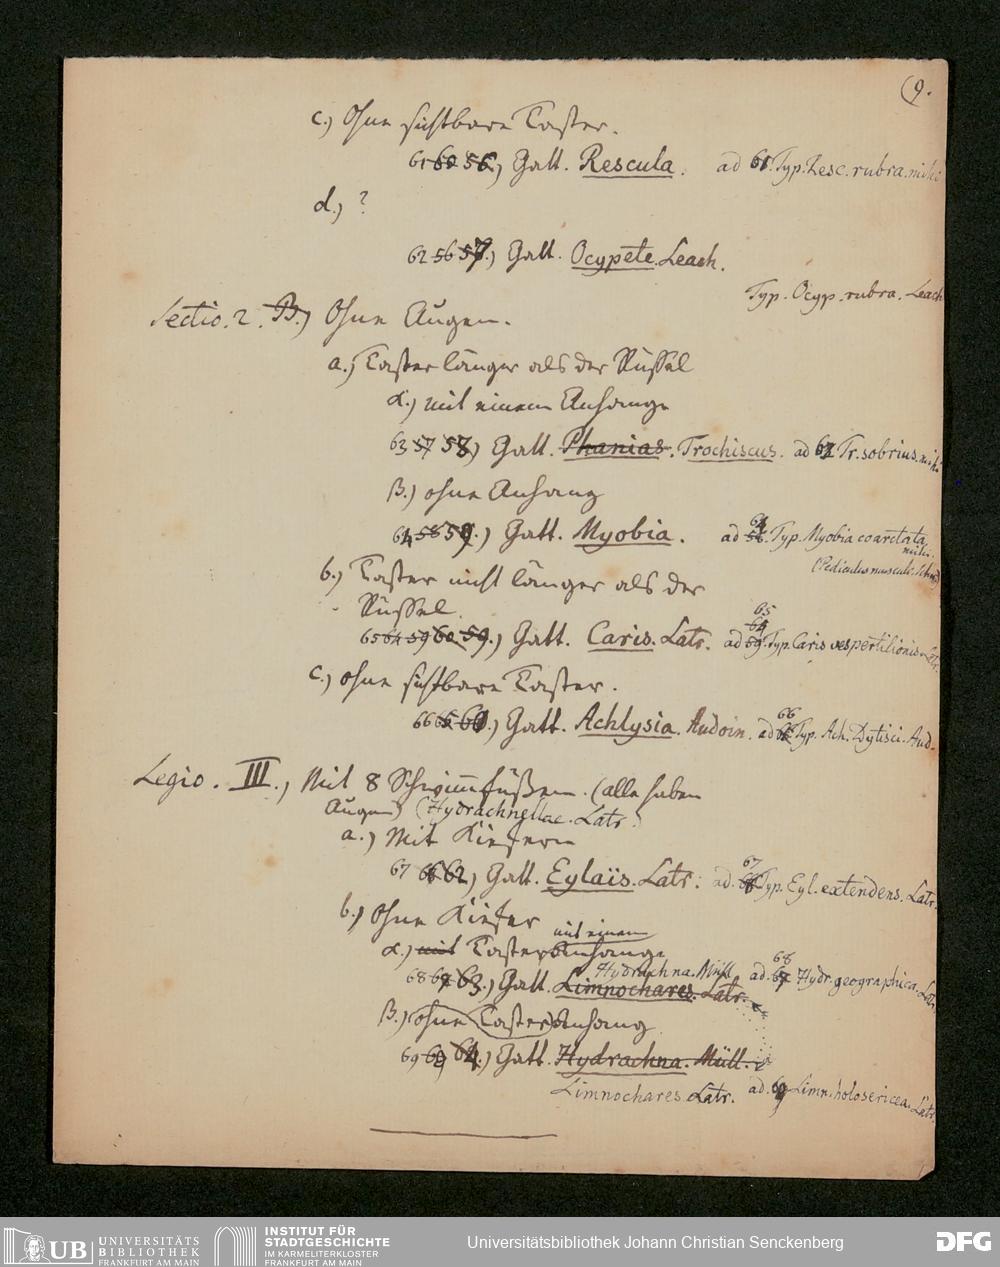 (9.
c.) Ohne sichtbare Taster.
61 60 56.) Gatt. Rescula. ad 61. Typ. Resc. rubra. mihi
d.) ?
62 56 57.) Gatt. Ocypete. Leach.
Typ. Ocyp. rubra. Leach
Sectio. 2. B.) Ohne Augen.
a.) Taster länger als der Rüssel
α.) mit einem Anhange
63 57 58) Gatt. Phanias. Trochiscus. ad 62 Tr. sobrius. mihi
β.) ohne Anhang
64 58 59.) Gatt. Myobia. ad 64 Typ. Myobia coarctata
mihi.
(Pediculus musculi. Schrk)
b.) Taster nicht länger als der
Rüssel
65 64 59 60 59.) Gatt. Caris. Latr. ad 65 64 59. Typ. Caris vespertilionis. Latr.
c.) ohne sichtbare Taster.
66 65 60.) Gatt. Achlysia. Audoin. ad 66 Typ. Ach. Dytisci. Aud.
Legio. III., Mit 8 Schwimmfüßen. (alle haben
Augen) (Hydrachnellae. Latr.)
a.) Mit Kiefern
67 62) Gatt. Eylaïs. Latr. ad. 67 Typ. Eyl. extendens. Latr.
b.) Ohne Kiefer
mit einem
α.) mit Taster Anhange
Hydrachna. Müll
68 63.) Gatt. Limnochares. Latr. ad. 68 Hydr. geographica. Latr
β.) ohne (Taster) Anhang
69 64.) Gatt. Hydrachna. Müll.
Limnochares. Latr. ad. 69 Limn. holosericea. Latr.
UB UNIVERSITÄTS
BIBLIOTHEK
FRANKFURT AM MAIN
INSTITUT FÜR
STADTGESCHICHTE
IM KARMELITERKLOSTER
FRANKFURT AM MAIN
Universitätsbibliothek Johann Christian Senckenberg
DFG